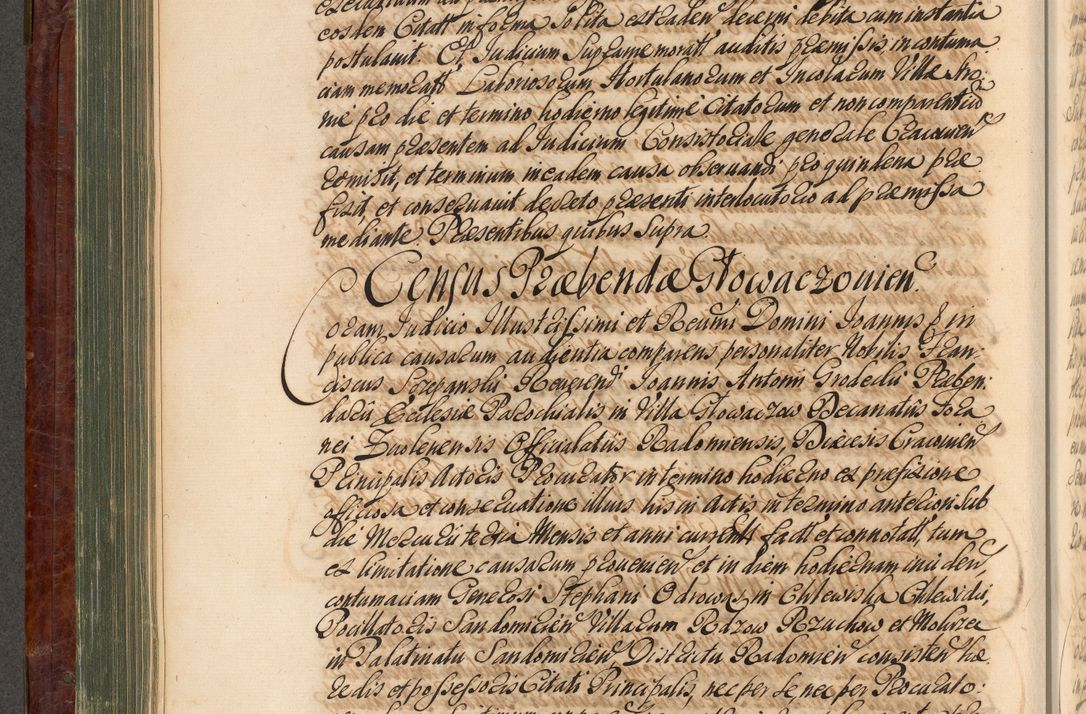 eosdem Citatt in forma solita extraden decerni debita cum instantia
postulavit. Et Judicium Supramemoratt auditis præmissis in contuma
ciam memoratt Laboriosorum Hortulanorum et Incolarum Villæ
nie pro die et termino hodierno legitime Citatorum et non comparentiũ
causam præsentem ad Judicium Consistoriale generale Cracovien
remisit, et terminum in eadem causa observandi pro quindena præ
fixit, et conservavit decreto præsenti interlocutorio ad præmissa
mediante. Præsentibus quibus supra.
Census Præbendæ Głowaczovien
Coram Judicio Illustrissimi et Reumi Domini Joannis & in
publica causarum audientia comparens personaliter Nobilis Fran-
ciscus Szczepanski Reverendi Joannis Antoni Grodecki Præben-
darii Ecclesiæ Parochialis in Villa Głowaczow Decanatûs Fora
nei Zwolenensis Officialatûs Radomiensis, Diæcesis Cracovien
Principalis Actoris Procurator in termino hodierno ex præfixione
officiosa et conservatione illius his in Actis in termino anteriori sub
die Mercurii tertia Mensis et anni currentt factt et connotatt, tum
ex limitatione causarum provenien et in diem hodiernam inciden
contumaciam Generosi Stephani Odrowąz in Chlewiska Chlewicki,
Pocillatoris Sandomirien Villarum Razow Rzuchow et Mokrza
in Palatinatu Sandomirien, Districtu Radomien consisten hæ
redis et possessoris Citati Principalis, nec per se nec per Procurato: